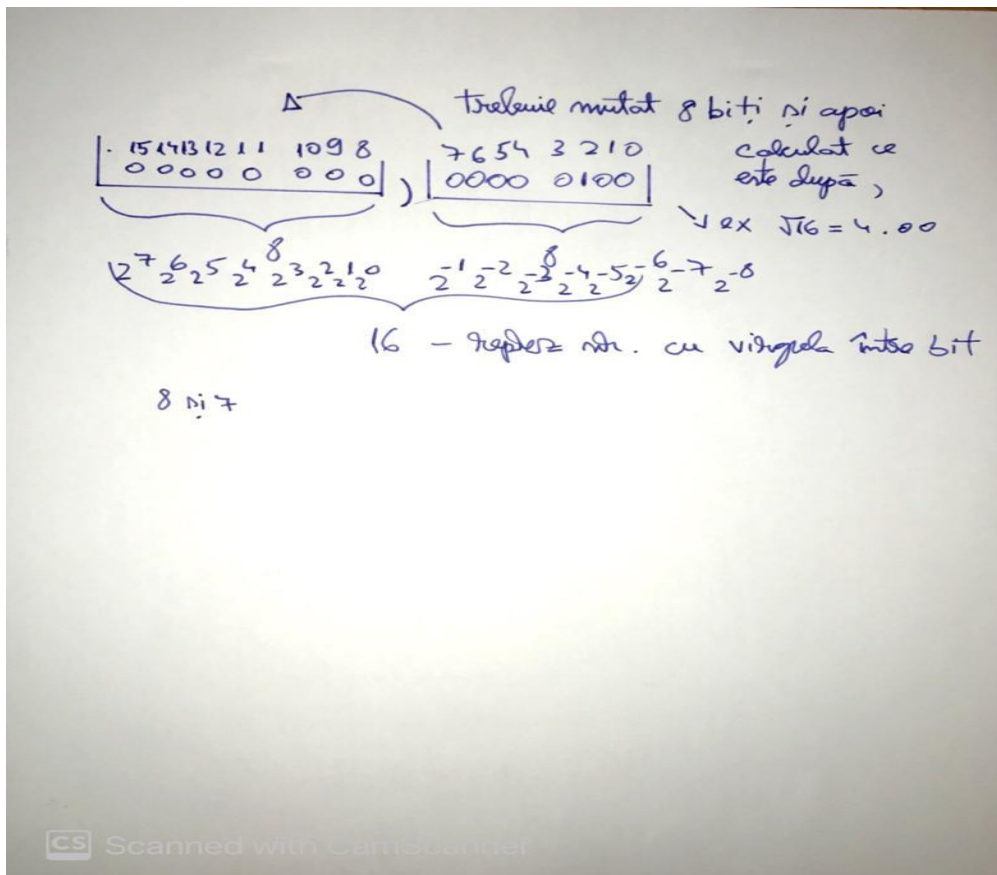 trebuie mutat 8 biți și apoi
calculat ce
este după ,
ex √16 = 4.00
15 14 13 12 11 10 9 8 7 6 5 4 3 2 1 0
0 0 0 0 0 0 0 0 , 0000 0100
8 8
2^7 2^6 2^5 2^4 2^3 2^2 2^1 2^0 2^-1 2^-2 2^-3 2^-4 2^-5 2^-6 2^-7 2^-8
16 - reprez nr. cu virgula între bit
8 și 7
CS Scanned with CamScanner